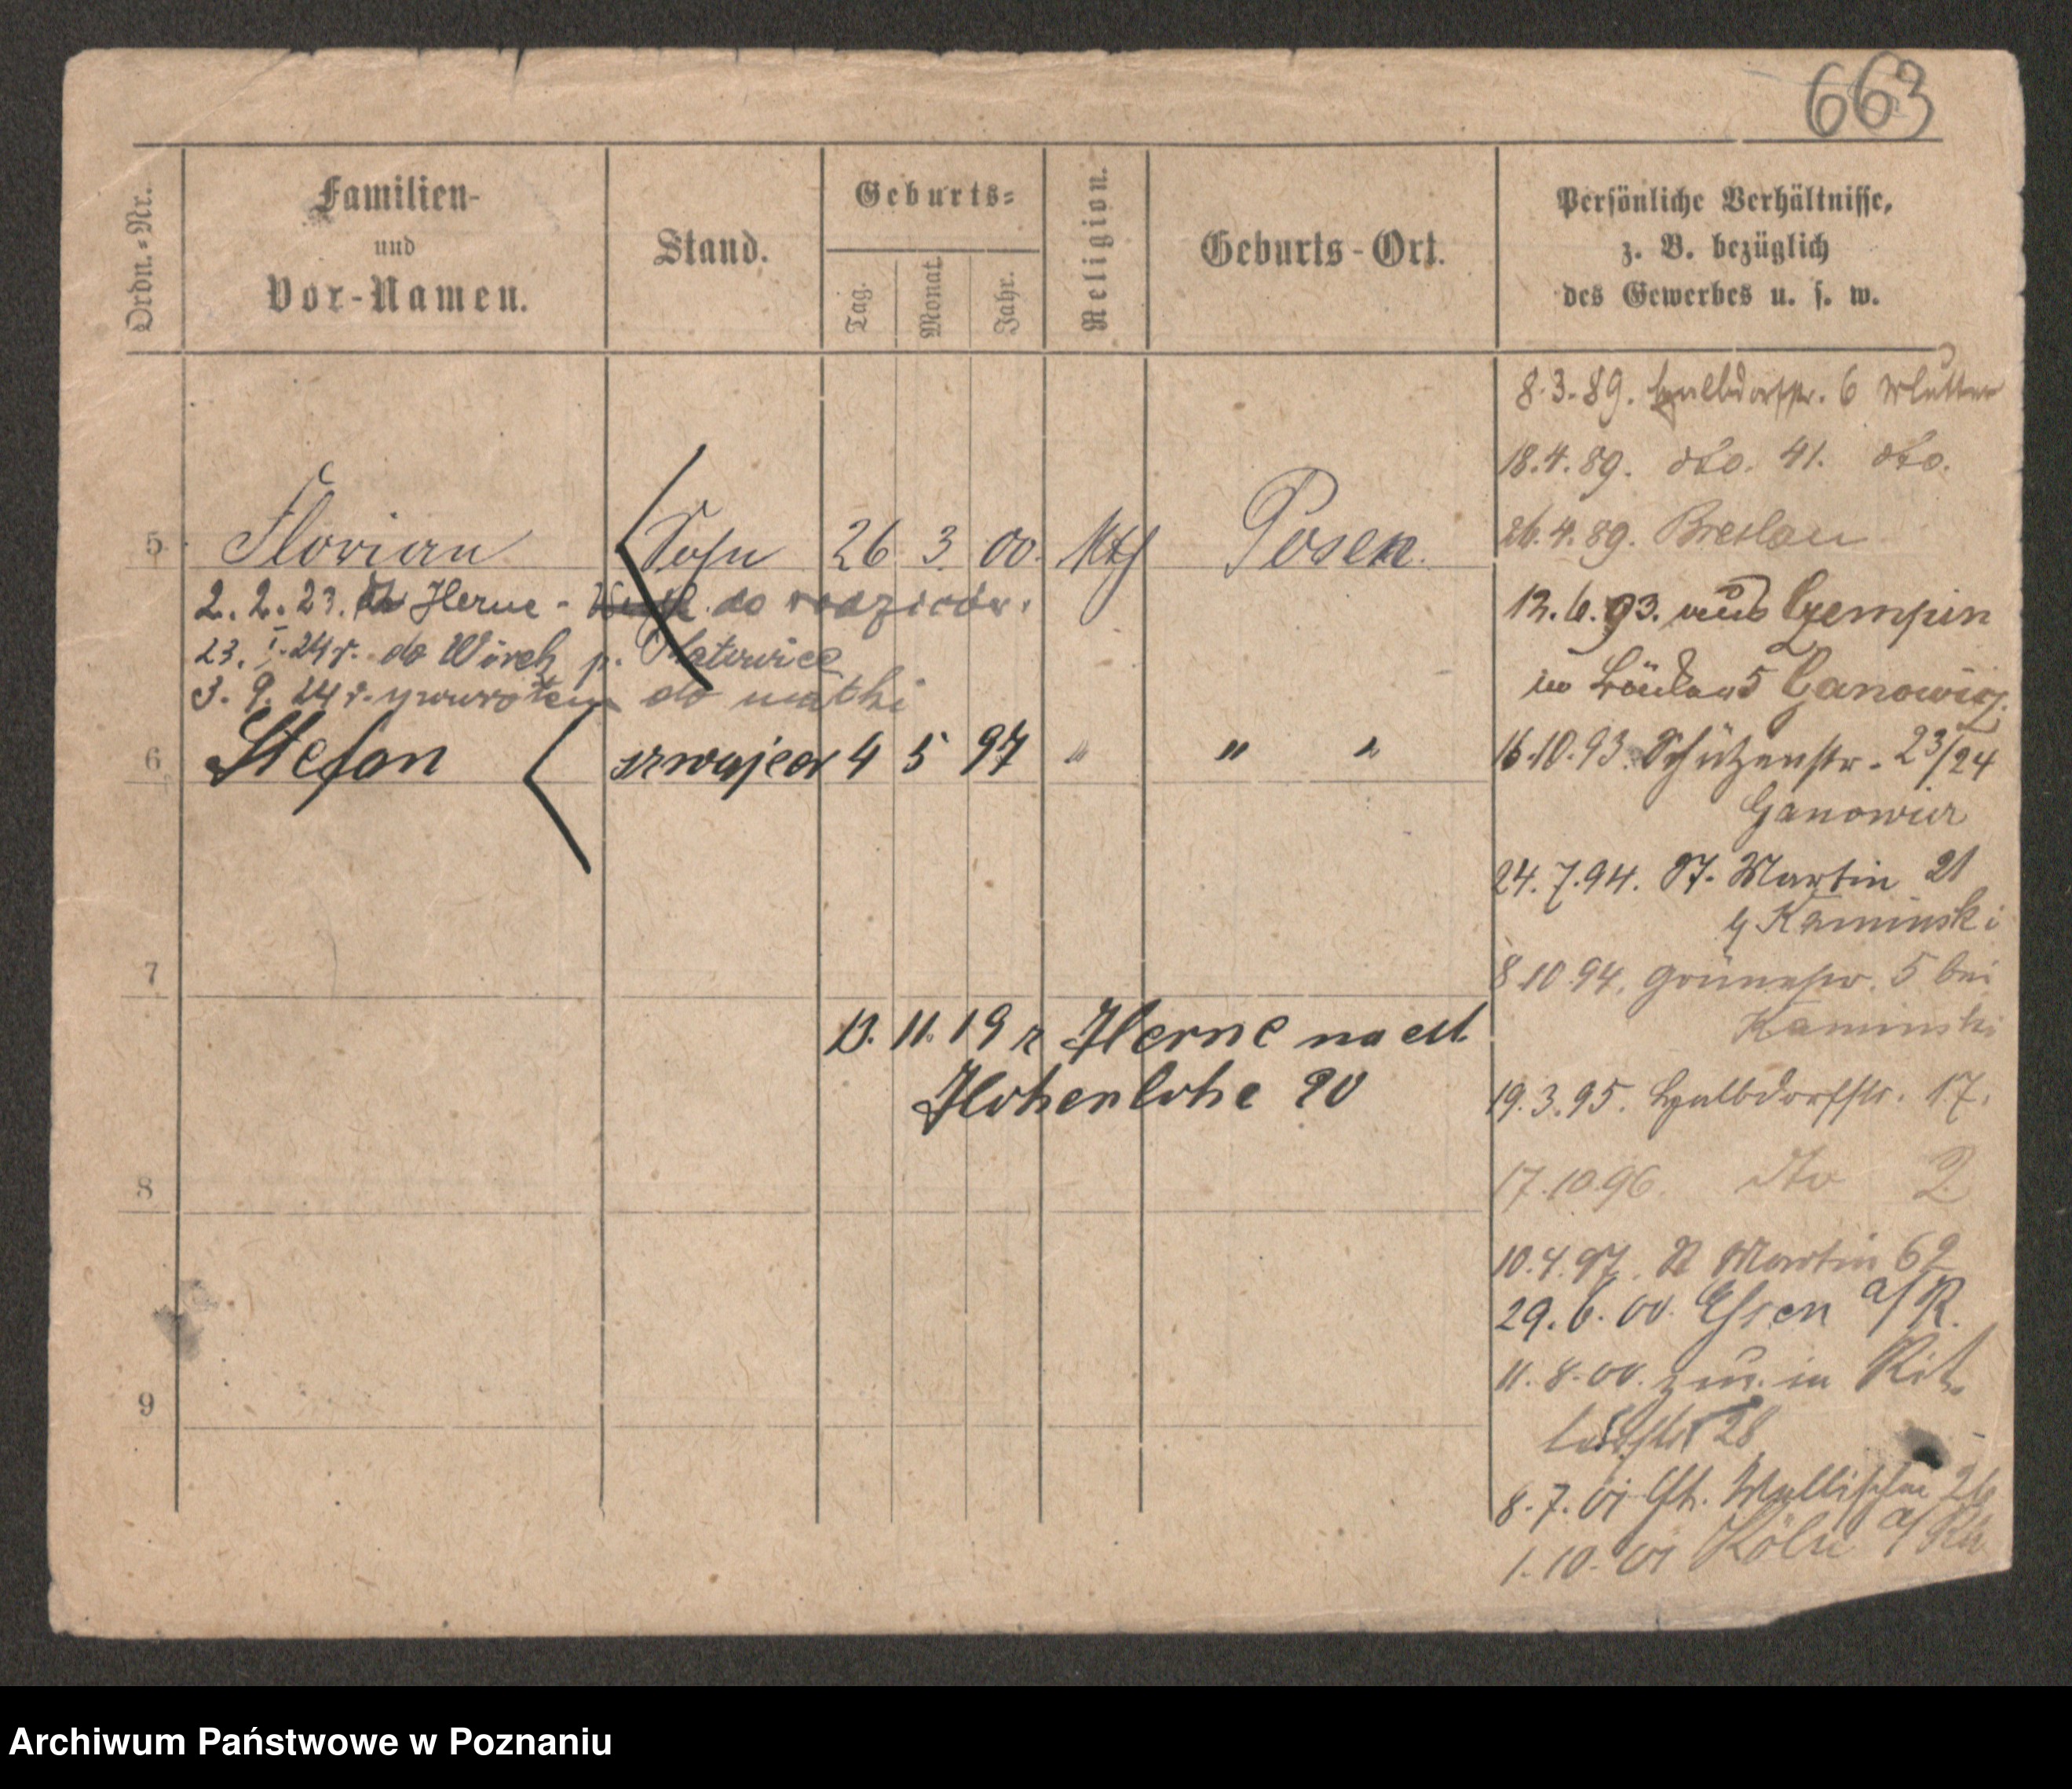 663
Ordn.-Nr.
Familien-
und
Vor-Namen.
Stand.
Geburts-
Tag.
Monat.
Jahr.
Religion.
Geburts-Ort.
Persönliche Verhältnisse,
z. B. bezüglich
des Gewerbes u. s. w.
8.3.89. Halbdorfstr. 6 Mutter
18.4.89. dto. 41. dto.
26.4.89. Breslau
5 Florian Sohn 26 3. 00. Kth Posen.
2.2.23. Herne - do rodziców.
23. I. 24 r. do Wirek p. Katowice
3. 9. 24 r. z powrotem do matki
12.6.93. aus Czempin
Ganowicz.
6 Stefan szwajcar 4 5 97 " " "
16.10.93. Schützenstr. 23/24
Ganowicz
24.7.94. St. Martin 21
Kaminski
7
8.10.94. Grünestr. 5 bei
Kaminski
13. 11. 19 z Herne nach
Hohenlohe 20
19.3.95. Halbdorfstr. 17.
8
17.10.96. dto 2
10.4.97. St Martin 62
29.6.00. Essen a/R.
11.8.00. zur. in Rit-
terstr 28
9
8.7.01 Wallischei 26
1.10.01 Köln a/Rh
Archiwum Państwowe w Poznaniu